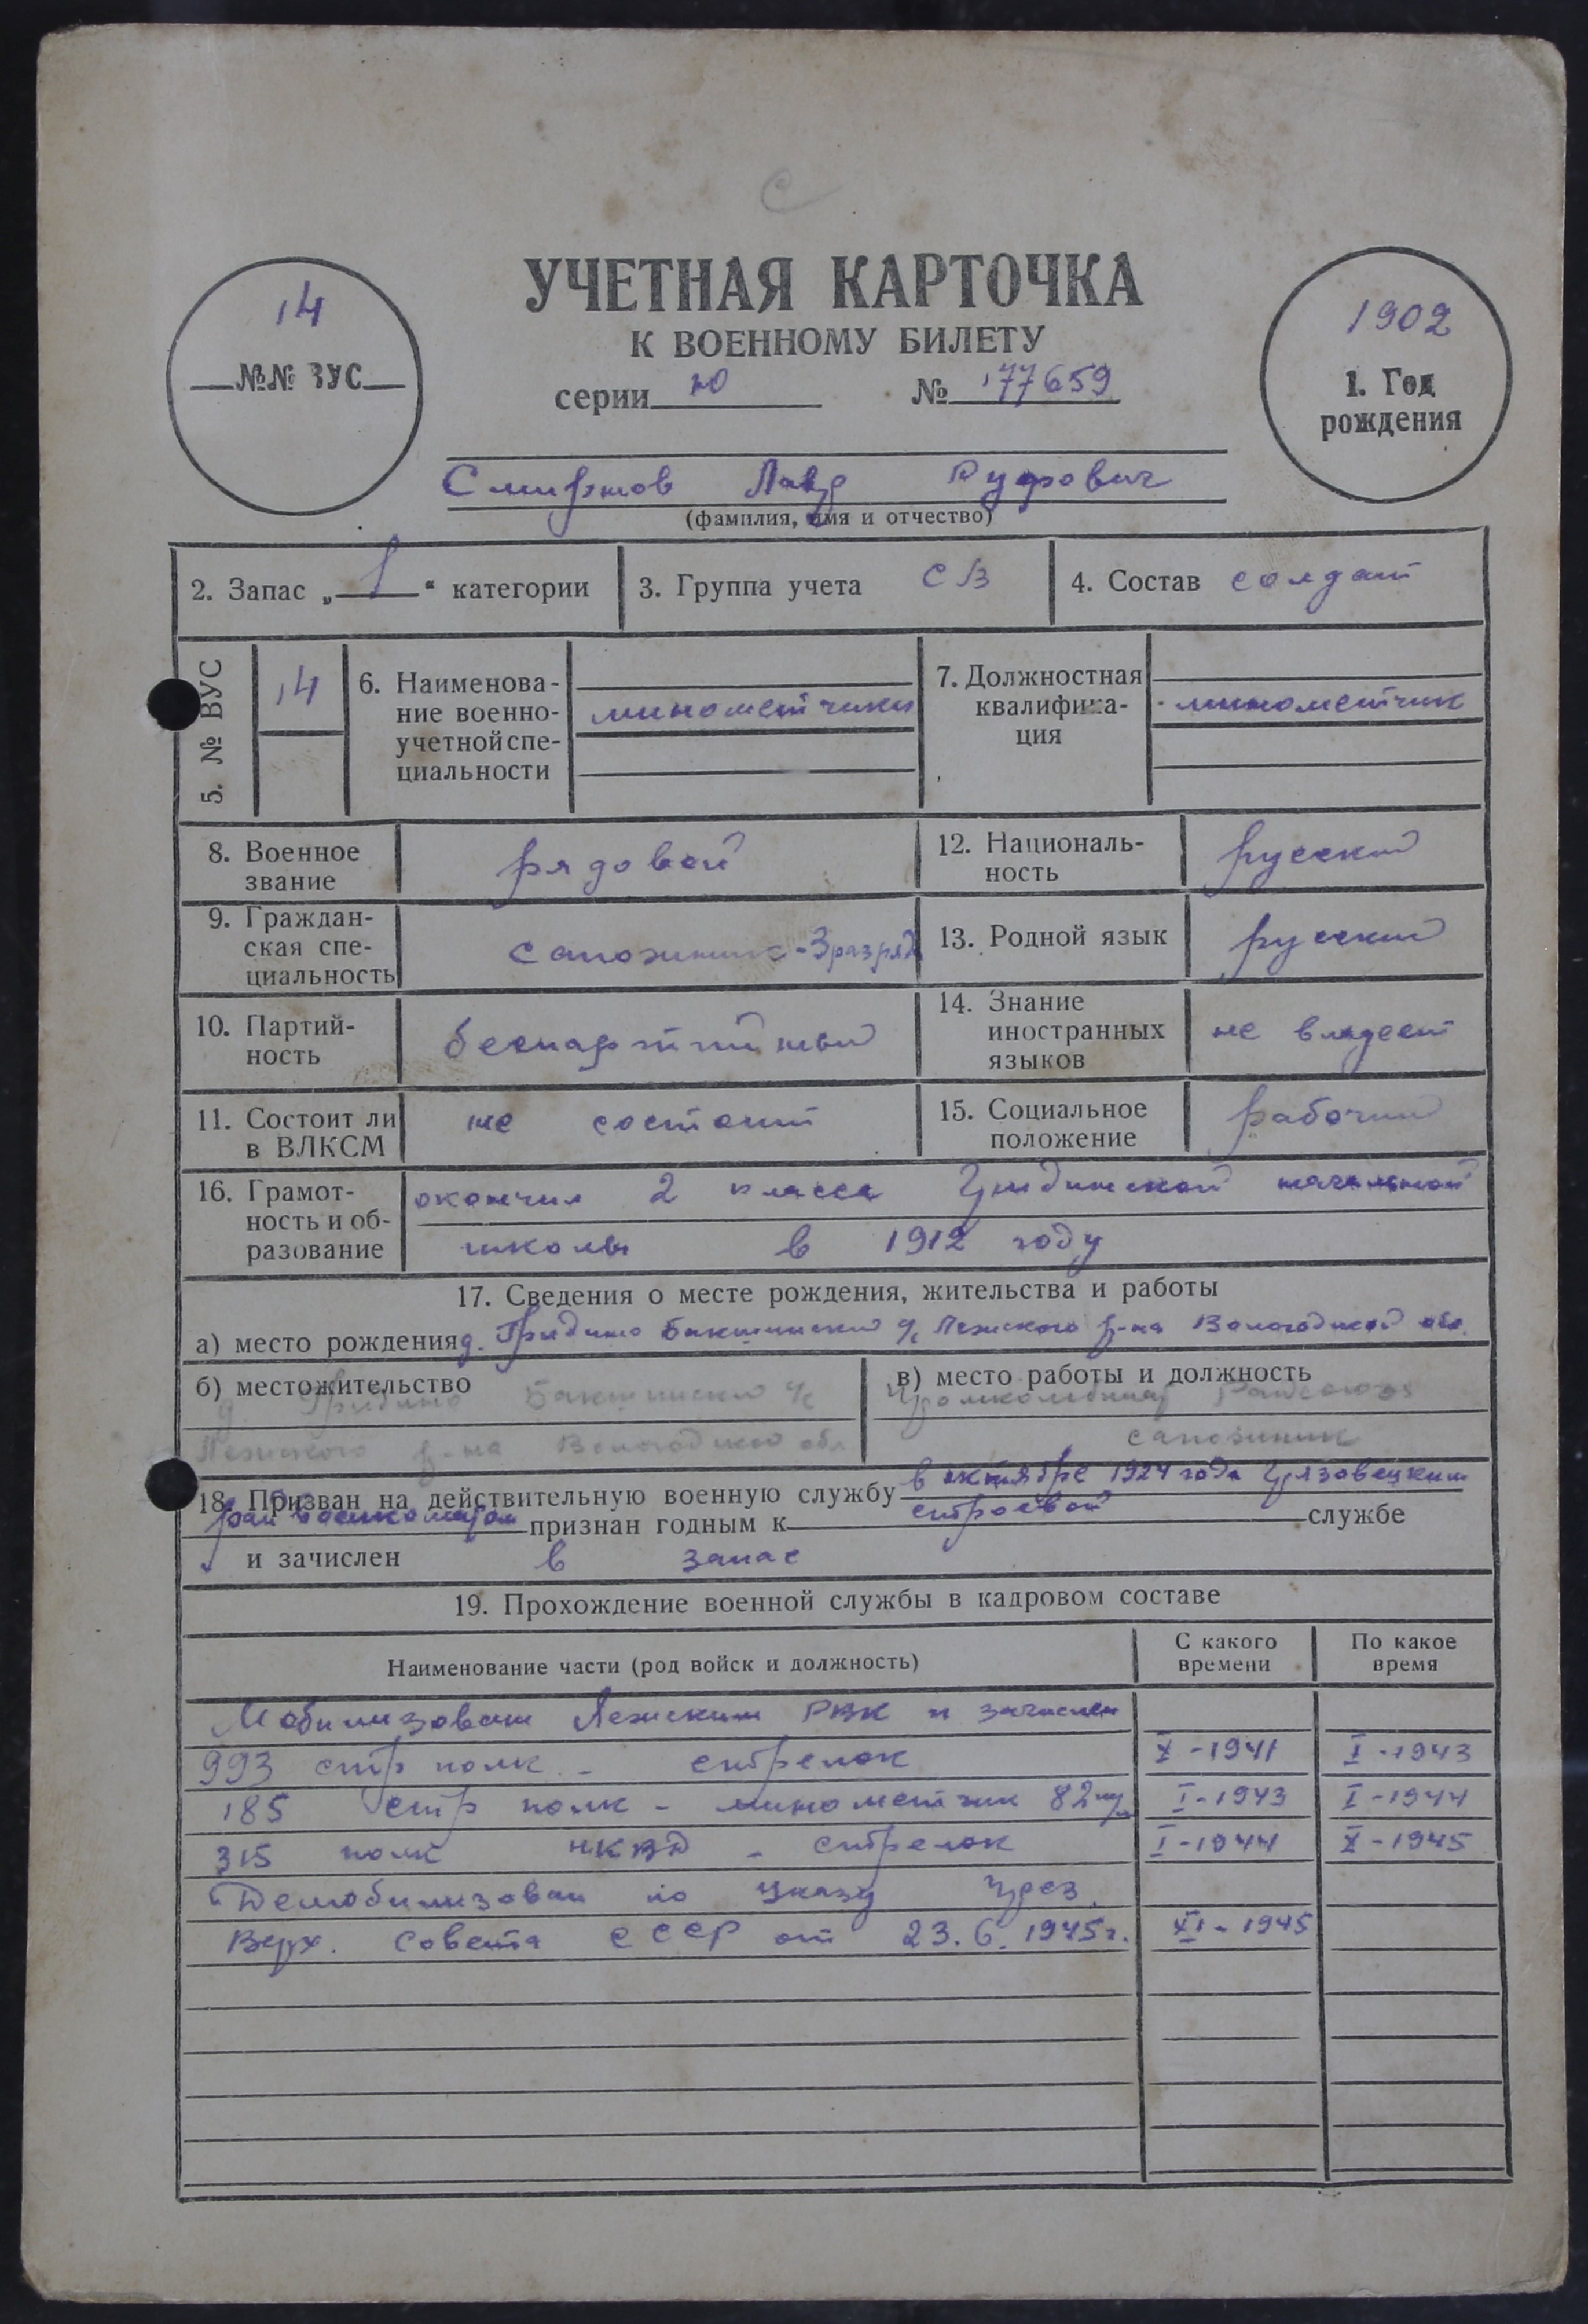 С
14
№№ ВУС
УЧЕТНАЯ КАРТОЧКА
К ВОЕННОМУ БИЛЕТУ
серии Ю № 177659
1902
1. Год рождения
Смирнов Лавр Руфович
(фамилия, имя и отчество)
2. Запас „1“ категории
3. Группа учета СВ
4. Состав солдат
5. № ВУС 14
6. Наименова-
ние военно-
учетной спе-
циальности
минометчики
7. Должностная
квалифика-
ция
минометчик
8. Военное
звание
рядовой
12. Националь-
ность
русский
9. Граждан-
ская спе-
циальность
сапожник - 3 разряд
13. Родной язык русский
10. Партий-
ность
беспартийный
14. Знание
иностранных
языков
не владеет
11. Состоит ли
в ВЛКСМ
не состоит
15. Социальное
положение
рабочий
16. Грамот-
ность и об-
разование
окончил 2 класса начальной
школы в 1912 году
17. Сведения о месте рождения, жительства и работы
а) место рождения д. Гридино Бакшинский с/с Лежского р-на Вологодской обл.
б) местожительство
д. Гридино Бакшинский с/с
Лежского р-на Вологодской обл
в) место работы и должность
Промкомбинат
сапожник
18. Призван на действительную военную службу в октябре 1924 года Грязовецким
рай военкоматом признан годным к строевой службе
и зачислен в запас
19. Прохождение военной службы в кадровом составе
Наименование части (род войск и должность)
С какого
времени
По какое
время
Мобилизован Лежским РВК и зачислен
993 стр полк - стрелок X - 1941 I - 1943
185 стр полк - минометчик 82 I - 1943 I - 1944
315 полк НКВД - стрелок I - 1944 X - 1945
Демобилизован по Указу През.
Верх. Совета СССР от 23.6.1945г. XI - 1945